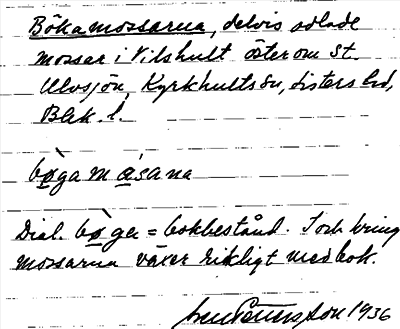 Bökamossarna, delvis odlade
mossar i Vilshult öster om St.
Ulvsjön, Kyrkhults sn, Listers hd,
Blek. l.
bø̀gamåsana
Dial. bø̀ga = bokbestånd. I och kring
mossarna växer rikligt med bok.
1936